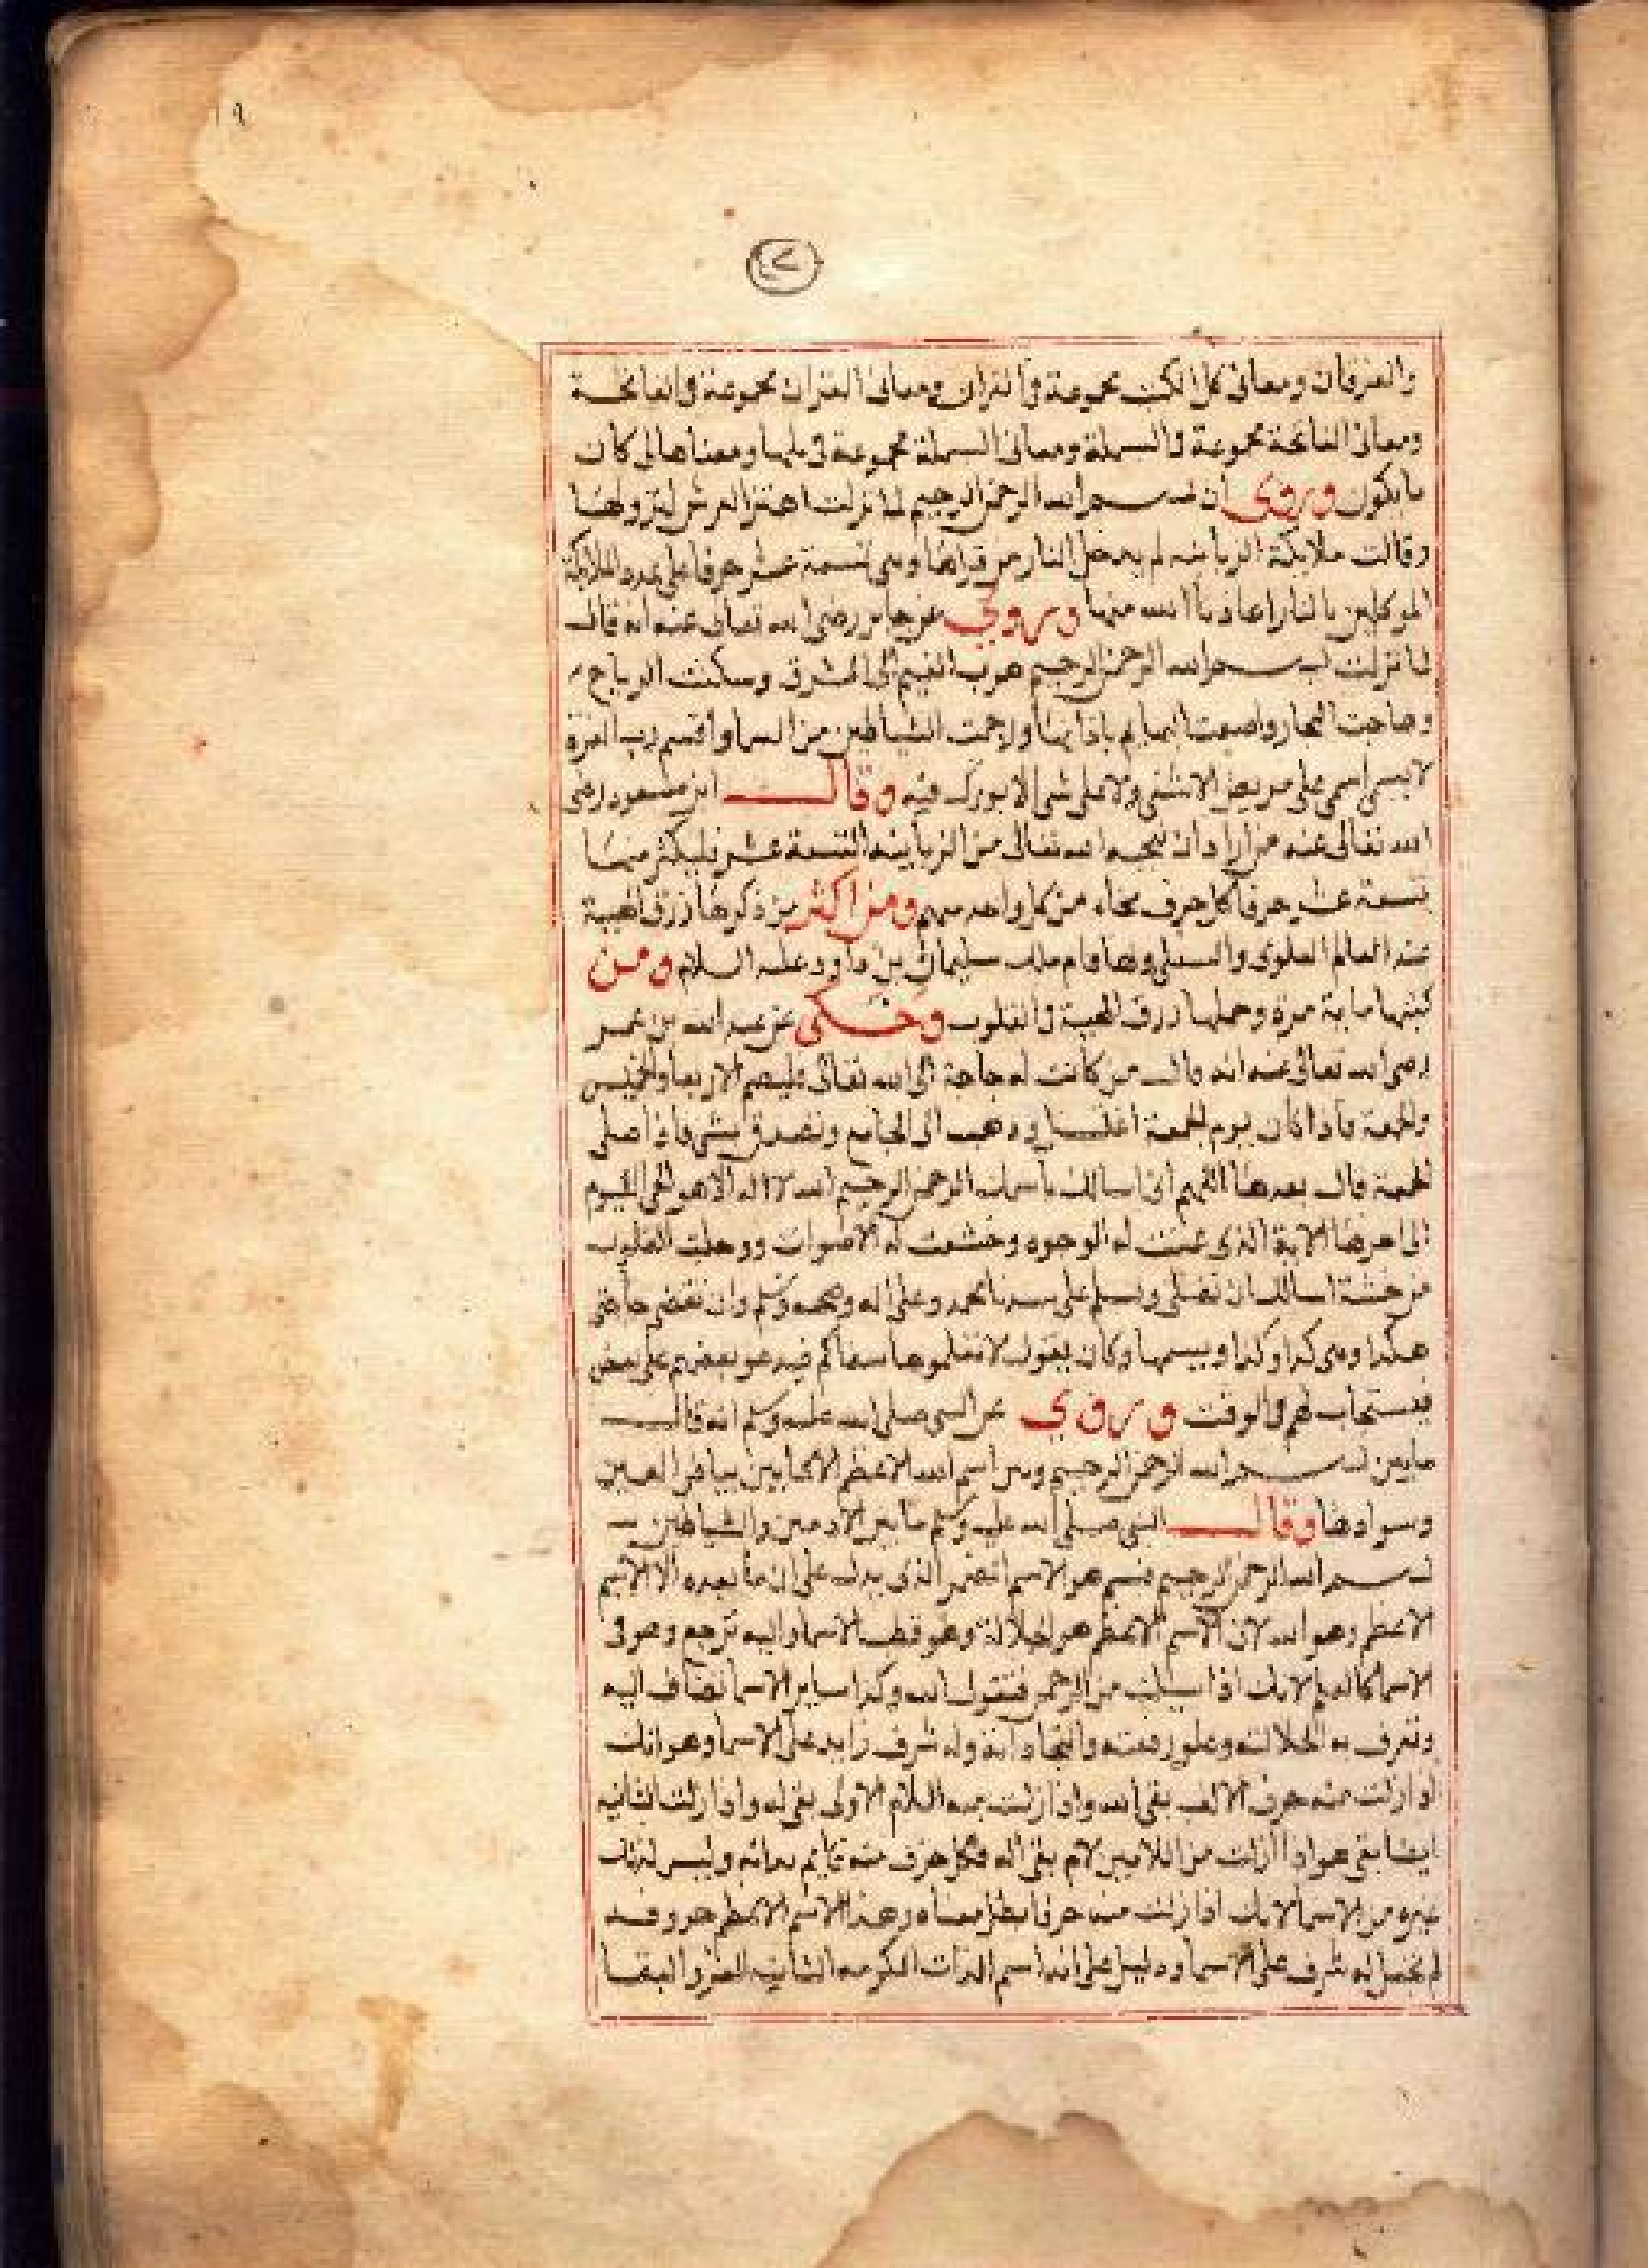 ٤٢
والفرقان ومعانى كل الكتب مجموعة فى القران ومعانى القران مجموعة فى الفاتحــة
ومعانى الفاتحة مجموعة فى البسملة ومعانى البسملة مجموعة فى بايها ومعناها بى كان
ما يكون وروى ان بسم الله الرحمن الرحيم لما نزلت اهتز العرش لنزولها
وقالت ملايكة الزبانيه لم يدخل النار من قراها وهى تسعة عشر حرفا على عدد الملايكة
الموكلين بالنار اعاذنا الله منها وروي عن جابر رضى الله تعالى عنه انه قال
لما نزلت بسم الله الرحمن الرحيم هرب الغيم الى المشرق وسكنت الرياح
وهاجت البحار واصغت البهايم باذانها ورجمت الشياطين من السما واقسم رب العزة
لا يسمى اسمى على مريض الا شفى ولا على شى الا بورك فيه وقال ابن مسعود رضى
الله تعالى عنه من اراد ان ينجيه الله تعالى من الزبانيه التسعة عشر فليكثر منها
تسعة عشر حرفا كل حرف نجاه من كل واحد منهم ومن اكثر من ذكرها رزق الهيبة
عند العالم العلوى والسفلى وبها قام ملك سليمان بن داود عليه السلام ومن
كتبها ماية مرة وحملها رزق الهيبة فى القلوب وحكى عن عبد الله بن عمر
رضى الله تعالى عنه انه قال من كانت له حاجة الى الله تعالى فليصم الاربعا والخميس
والجمعة فاذا كان يوم الجمعة اغتسل وذهب الى الجامع وتصدق بشى فاذا صلى
الجمعة قال بعدها اللهم انى اسالك باسمك الرحمن الرحيم الله لا اله الا هو الحى القيوم
الى اخرها الاية الذى عنت له الوجوه وخشعت له الاصوات ووجلت القلوب
من خشيته اسالك ان تصلى وتسلم على سيدنا محمد وعلى اله وصحبه وسلم وان تقضى حاجتى
هكذا وهى كذا وكذا ويسمها وكان يقول لا تعلموها سفهاكم فيدعو بعضهم على بعض
فيستجاب لهم فى الوقت وروي عن النبى صلى الله عليه وسلم انه قال
ما بين بسم الله الرحمن الرحيم وبين اسم الله الاعظم الا كما بين بياض العين
وسوادها وقال النبى صلى الله عليه وسلم ما بين الادميين والشياطين
بسم الله الرحمن الرحيم فبسم هو الاسم المضمر الذى يدل على ان ما بعده الا الاسم
الاعظم وهو الله لان الاسم الاعظم هو الجلالة وهو قطب الاسما واليه ترجع وهو فى
الاسما كالعلم لانك اذا سيلت من الرحمن فتقول الله وكذا ساير الاسما تضاف اليه
وتعرف به الجلالته وعلو رفعته وله شرف زايد على الاسما وهو انك
اذا ازلت منه حرف الالف بقى لله واذا ازلت منه اللام الاولى بقى له واذا ازلت الثانيه
ايضا بقى هو اذا ازلت من اللامين لام بقى اله فكل حرف منه قايم بذاته وليس لذلك
غيره من الاسما لانك اذا ازلت منه حرفا بطل معناه وهذا الاسم الاعظم حروفه
لم يحصل له شرف على الاسما ودليل على انه اسم الذات المكرمه الثابته للعز والبقا